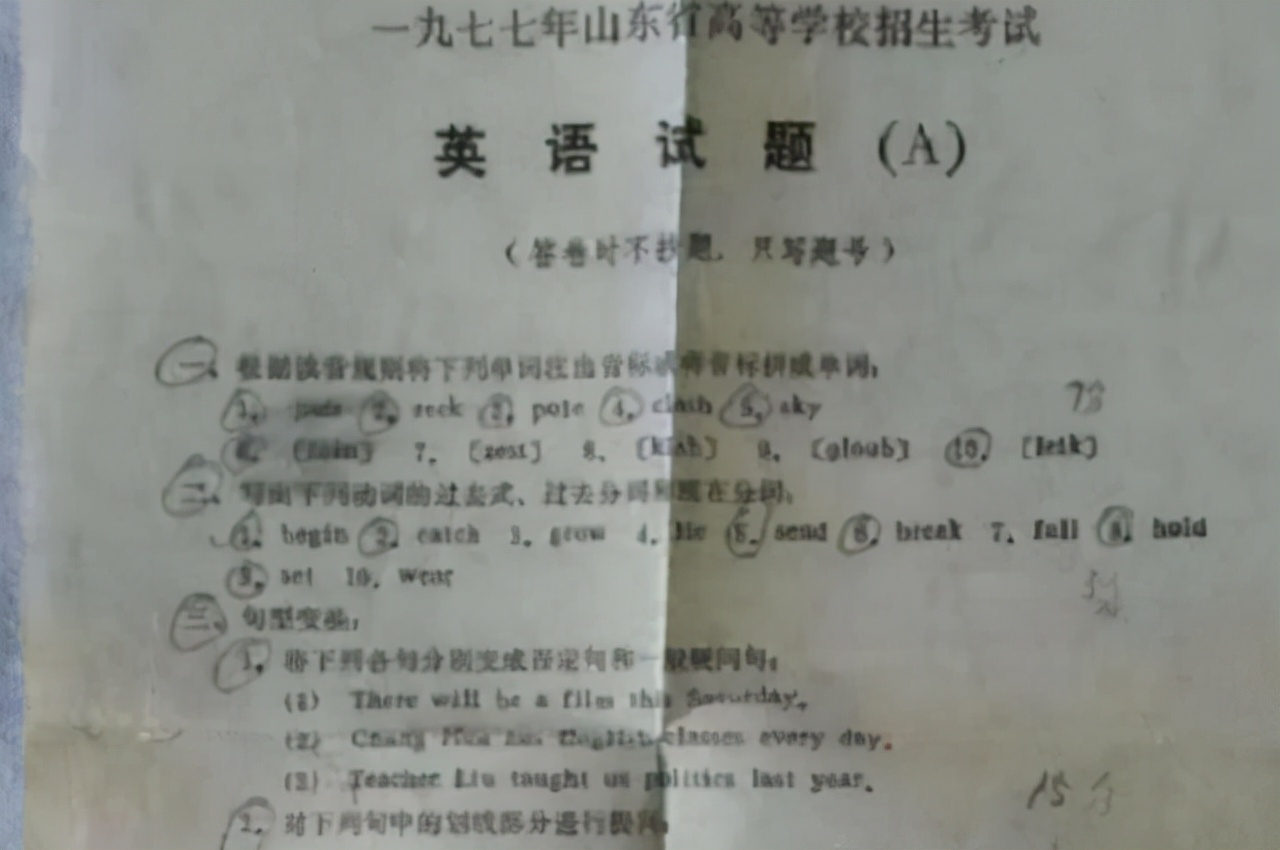 一九七七年山东省高等学校招生考试
英语试题(A)
(答卷时不抄题,只写题号)
一、根据读音规则将下列单词注出音标或将音标拼成单词:
1. 2. seek 3. pole 4. cloth 5. sky
6. 7. 8. 9. 10.
二、写出下列动词的过去式、过去分词和现在分词。
1. begin 2. catch 3. grow 4. lie 5. send 6. break 7. fall 8. hold
9. set 10. wear
三、句型变换:
1. 将下列各句分别变成否定句和一般疑问句:
(1) There will be a film this Saturday.
(2) Chang Hua has English classes every day.
(3) Teacher Liu taught us politics last year.
15分
2. 对下列句中的划线部分进行提问: